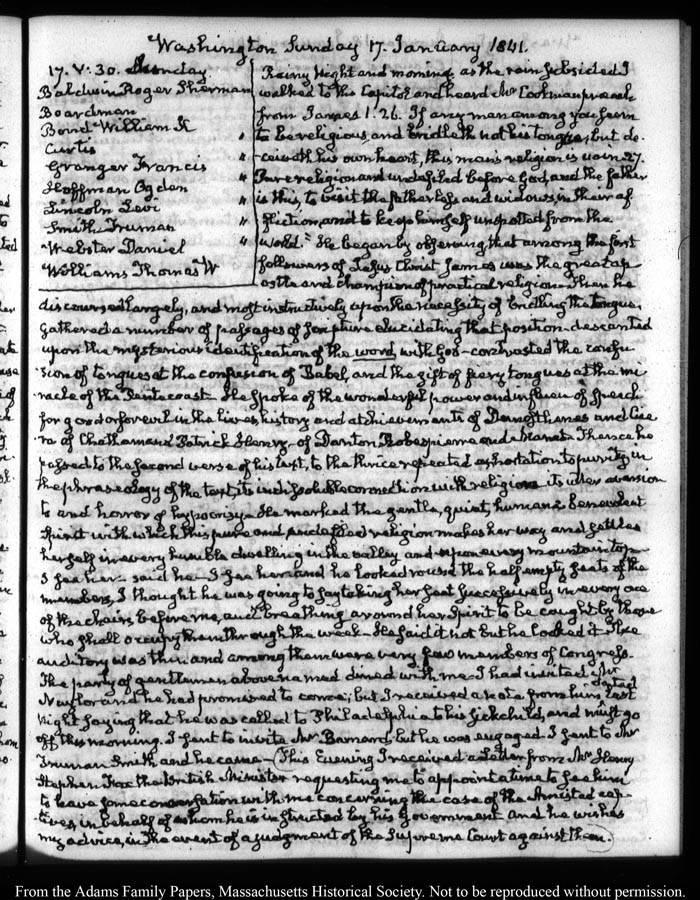 Washington Sunday 17. January 1841.
17. V: 30. Sunday
Baldwin Roger Sherman
Boardman
Bond William K
Curtis "
Granger Francis "
Hoffman Ogden "
Lincoln Levi "
Smith Truman "
Webster Daniel "
Williams Thomas W
Rainy Night and morning. as the rain subsided I
walked to the Capitol and heard Mr Cookman preach
from James 1. 26. If any man among you seem
to be religious, and bridleth not his tongue, but de-
ceiveth his own heart, this man's religion is vain. 27.
Pure religion and undefiled before God, and the father
is this, to visit the fatherless and widows, in their af
fliction, and to keep himself unspotted from the
world." He began by observing that among the first
followers of Jesus Christ James was the great ap
ostle and champion of practical religion. Then he
discoursed largely, and most instructively upon the necessity of bridling the tongue.
Gathered a number of passages of Scripture elucidating that position—descanted
upon the mysterious identification of the word, with God—contrasted the confu
sion of tongues at the confusion of Babel, and the gift of fiery tongues at the mi
racle of the Pentecost. He spoke of the wonderful power and influence of speech
for good or for evil in the lives history and achievements of Demosthenes and Cice
ro of Chatham and Patrick Henry—of Danton Robespierre and Marat. Thence he
passed to the second verse of his text, to the thrice repeated exhortation to purity in
the phraseology of the text, its indissoluble connection with religion its utter aversion
to and horror of hypocrisy—He marked the gentle, quiet, humane benevolent
Spirit with which this pure and undefiled religion makes her way and settles
herself in every humble dwelling in the valley and upon every mountain top—
I see her—said he—I see her and he looked round the half empty seats of the
members, I thought he was going to say taking her seat successively in every one
of the chairs before me, and breathing around her Spirit to be caught by those
who shall occupy them through the week—He said it not but he looked it. The
auditory was thin and among them were very few members of Congress.
The party of gentlemen above named dined with me. I had invited Mr
Naylor and he had promised to come; but I received a note from him dated last
Night saying that he was called to Philadelphia to his sick child, and must go
off this morning. I sent to invite Mr Barnard, but he was engaged. I sent to Mr
Truman Smith and he came—This Evening I received a Letter from Mr Henry
Stephen Fox the British Minister requesting me to appoint a time to see him
to have some conversation with me concerning the case of the Amistad cap-
tives, in behalf of whom he is instructed by his Government and he wishes
my advice, in the event of a judgment of the Supreme Court against them.
From the Adams Family Papers, Massachusetts Historical Society. Not to be reproduced without permission.